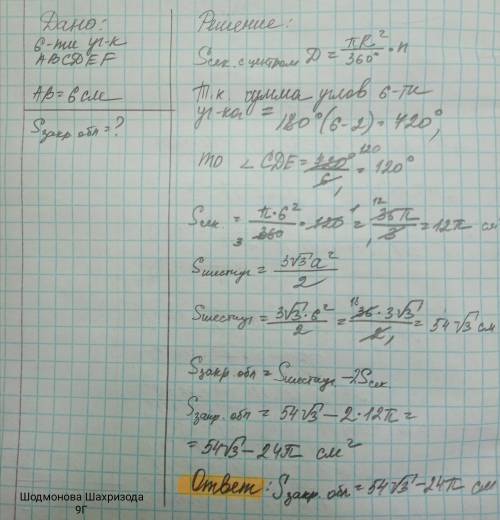 Дано:
6-ти уг-к
ABCDEF
AB=6см
Sзакр.обл=?
Решение:
Sсек. с центром D = πR²/360° · n
Т.к. сумма углов 6-ти
уг-ка = 180°(6-2)=720°,
то ∠CDE = 720°/6 = 120°
Sсек. = π·6²/360 · 120 = 36π/3 = 12π см
Sшестиуг = 3√3a²/2
Sшестиуг = 3√3·6²/2 = 36·3√3/2 = 54√3 см
Sзакр.обл = Sшестиуг - 2Sсек
Sзакр.обл = 54√3 - 2·12π =
= 54√3 - 24π см²
Ответ: Sзакр.обл. = 54√3 - 24π см
Шодмонова Шахризода
9Г